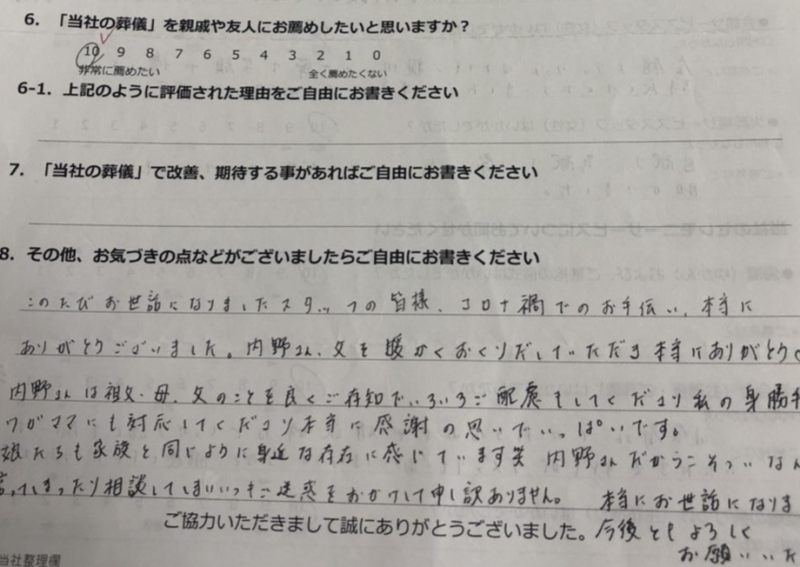 6. 「当社の葬儀」を親戚や友人にお薦めしたいと思いますか？
10 9 8 7 6 5 4 3 2 1 0
非常に薦めたい 全く薦めたくない
6-1. 上記のように評価された理由をご自由にお書きください
7. 「当社の葬儀」で改善、期待する事があればご自由にお書きください
8. その他、お気づきの点などがございましたらご自由にお書きください
このたびお世話になりましたスタッフの皆様、コロナ禍でのお手伝い、本当に
ありがとうございました。内野さん、父を暖かくおくりだしていただき本当にありがとう
内野さんは祖父・母、父のことを良くご存知でいろいろご配慮をしてくださり私の身勝手
ワガママにも対応してくださり本当に感謝の思いでいっぱいです。
娘たちも家族と同じように身近な存在に感じています笑 内野さんだからこそついなん
言ってしまったり相談してしまいいつもご迷惑をおかけして申し訳ありません。 本当にお世話になりま
ご協力いただきまして誠にありがとうございました。今後ともよろしく
お願いいた
当社整理欄